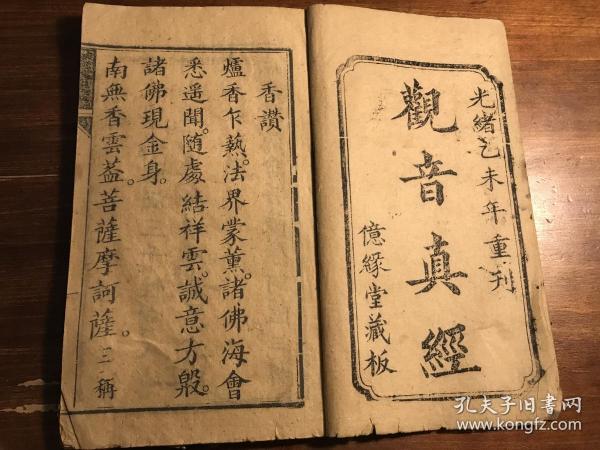 光緒乙未年重刊
觀音真經
億緣堂藏板
香讚
爐香乍熱。法界蒙薰。諸佛海會
悉遥聞。随處結祥雲。誠意方殷。
諸佛現金身。
南無香雲蓋菩薩摩訶薩。三稱
孔夫子旧书网
www.kongfz.com